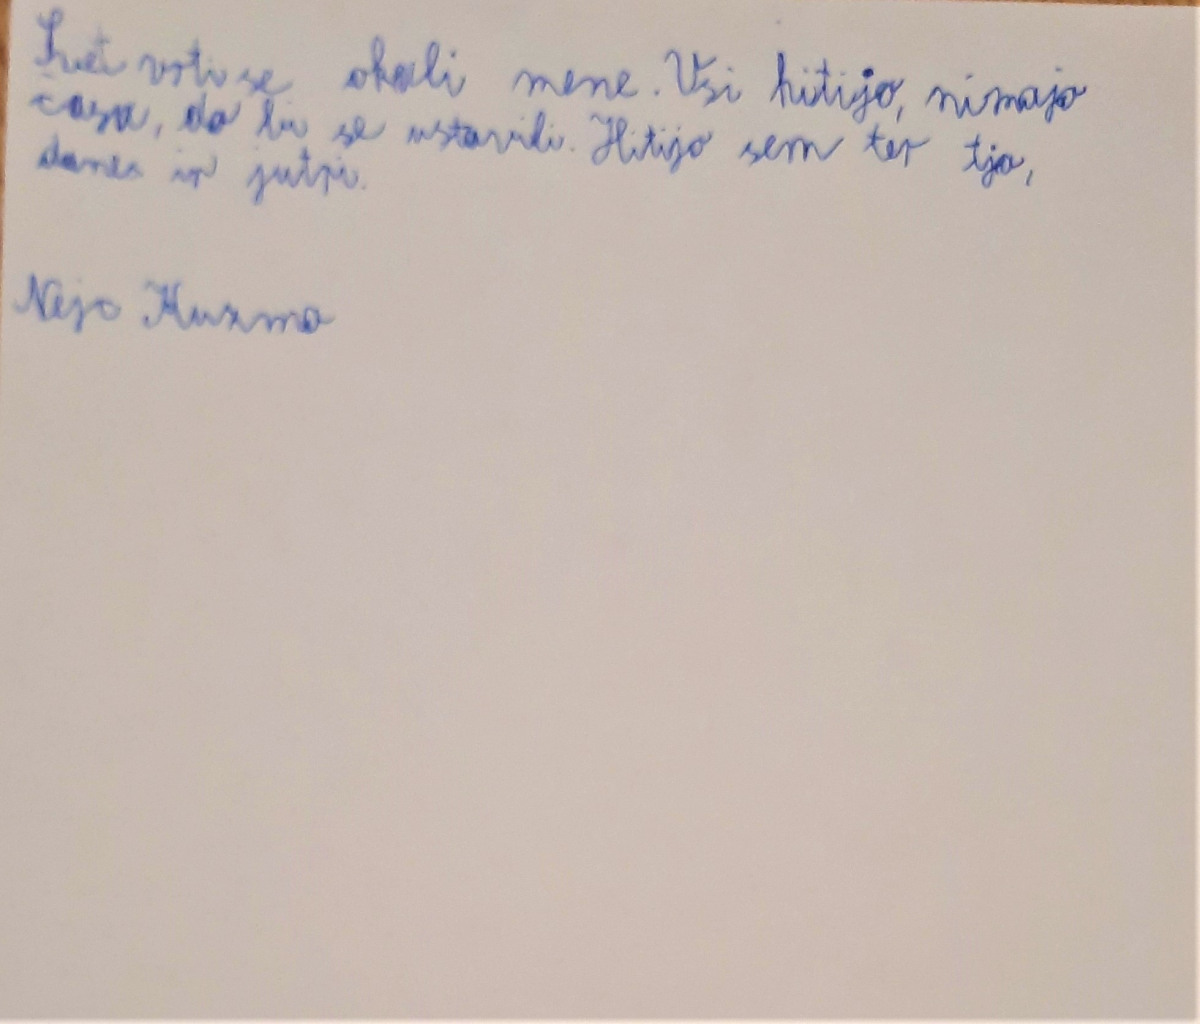 Svet vrti se okoli mene. Vsi hitijo, nimajo
časa, da bi se ustavili. Hitijo sem ter tja,
danes in jutri.
Neja Kuzma